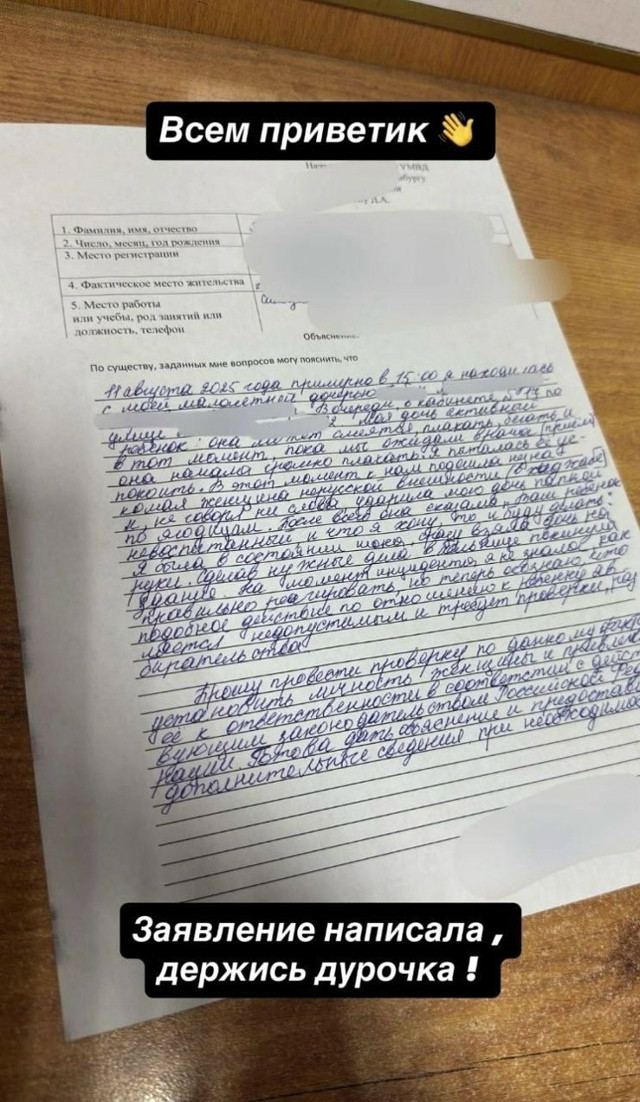 Всем приветик 👋
УМВД
1. Фамилия, имя, отчество
2. Число, месяц, год рождения
3. Место регистрации
4. Фактическое место жительства
5. Место работы
или учебы, род занятий или
должность, телефон
По существу, заданных мне вопросов могу пояснить, что
11 августа 2025 года примерно в 15:00 я находилась
с моей малолетней дочерью
В очереди, о кабинете, №13 по
улице моя дочь активный
ребенок: она может смеяться, плакать, бегать и
в тот момент, пока мы ожидали врача (прием)
она начала громко плакать. Я пыталась её ус-
покоить. В этот момент к нам подошла незна-
комая женщина нерусской внешности (в хаджабе)
и, не говоря ни слова, ударила мою дочь ладонью
по ягодицам. После всего она сказала: "Там ребенок
невоспитанный и что я хочу, то и буду делать".
Я была в состоянии шока, сразу взяла дочь на
руки. Сделав нужные дела в больнице покинула
здание. На момент инцидента я не знала, как
правильно реагировать, но теперь осознаю, что
подобное действие по отношению к ребенку яв
ляется недопустимым и требует проверки, раз
бирательства.
Прошу провести проверку по данному факту
установить личность женщины и привлечь
её к ответственности в соответствии с дейст
вующим законодательством Российской Фед
рации. Готова дать объяснение и предостав
дополнительные сведения при необходимос
Заявление написала ,
держись дурочка !